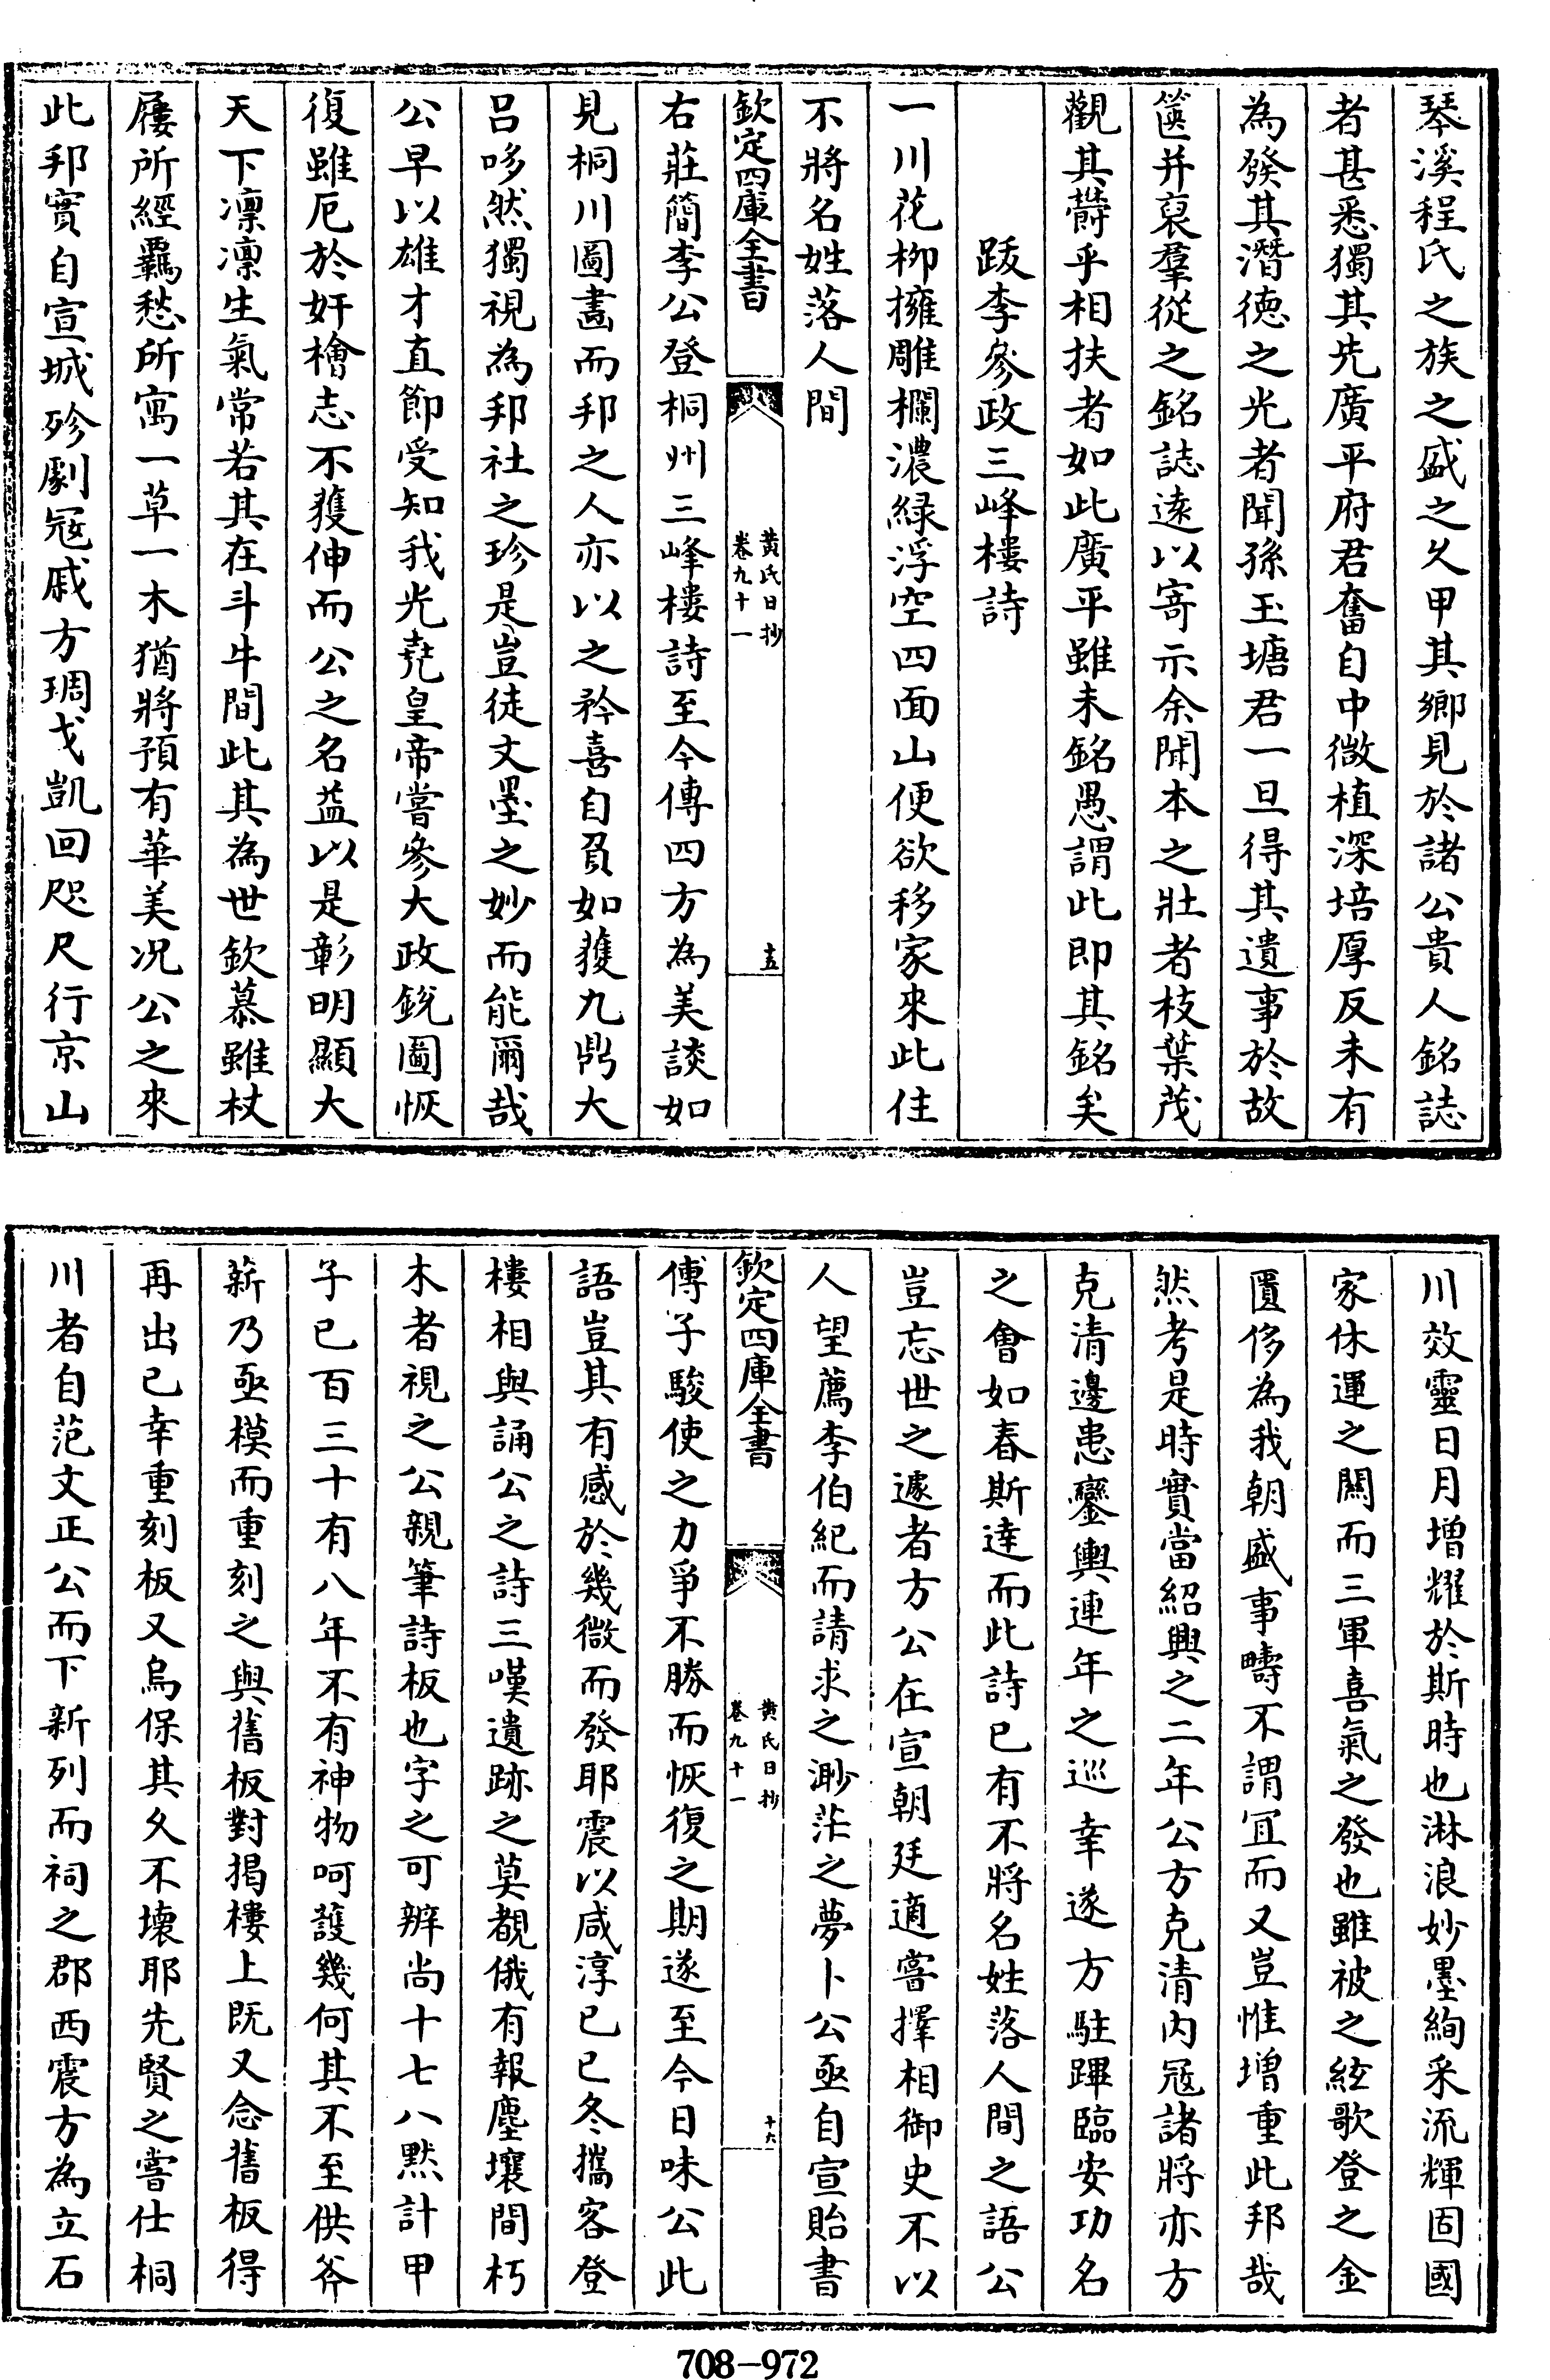 琴溪程氏之族之盛之久甲其鄉見於諸公貴人銘誌
者甚悉獨其先廣平府君奮自中微植深培厚反未有
為發其潛德之光者聞孫玉塘君一旦得其遺事於故
篋并裒羣從之銘誌遠以寄示余聞本之壯者枝葉茂
觀其欝乎相扶者如此廣平雖未銘愚謂此即其銘矣
跋李參政三峰樓詩
一川花栁擁雕欄濃緑浮空四面山便欲移家來此住
不將名姓落人間
欽定四庫全書
黄氏日抄
卷九十一
十五
右莊簡李公登桐州三峰樓詩至今傳四方為美談如
見桐川圖畵而邦之人亦以之矜喜自負如獲九鼎大
呂哆然獨視為邦社之珍是豈徒文墨之妙而能爾哉
公早以雄才直節受知我光堯皇帝嘗參大政銳圖恢
復雖厄於奸檜志不獲伸而公之名益以是彰明顯大
天下凛凛生氣常若其在斗牛間此其為世欽慕雖杖
屨所經覊愁所寓一草一木猶將預有華美況公之來
此邦實自宣城殄劇冦戚方琱戈凱回咫尺行京山
川效靈日月增耀於斯時也淋浪妙墨絢采流輝固國
家休運之闗而三軍喜氣之發也雖被之絃歌登之金
匱侈為我朝盛事疇不謂宜而又豈惟增重此邦哉
然考是時實當紹興之二年公方克清内冦諸將亦方
克清邊患鑾輿連年之巡幸遂方駐蹕臨安功名
之會如春斯達而此詩已有不將名姓落人間之語公
豈忘世之遽者方公在宣朝廷適嘗擇相御史不以
人望薦李伯紀而請求之渺茫之夢卜公亟自宣貽書
欽定四庫全書
黄氏日抄
卷九十一
十六
傅子駿使之力爭不勝而恢復之期遂至今日味公此
語豈其有感於幾微而發耶震以咸淳已巳冬攜客登
樓相與誦公之詩三嘆遺跡之莫覩俄有報塵壤間朽
木者視之公親筆詩板也字之可辨尚十七八黙計甲
子已百三十有八年不有神物呵護幾何其不至供爨
薪乃亟模而重刻之與舊板對揭樓上既又念舊板得
再出已幸重刻板又烏保其久不壞耶先賢之嘗仕桐
川者自范文正公而下新列而祠之郡西震方為立石
708-972